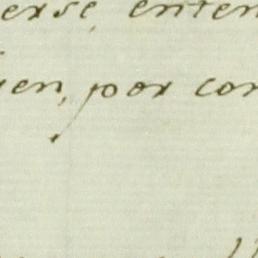 erse, enten
ien, por con